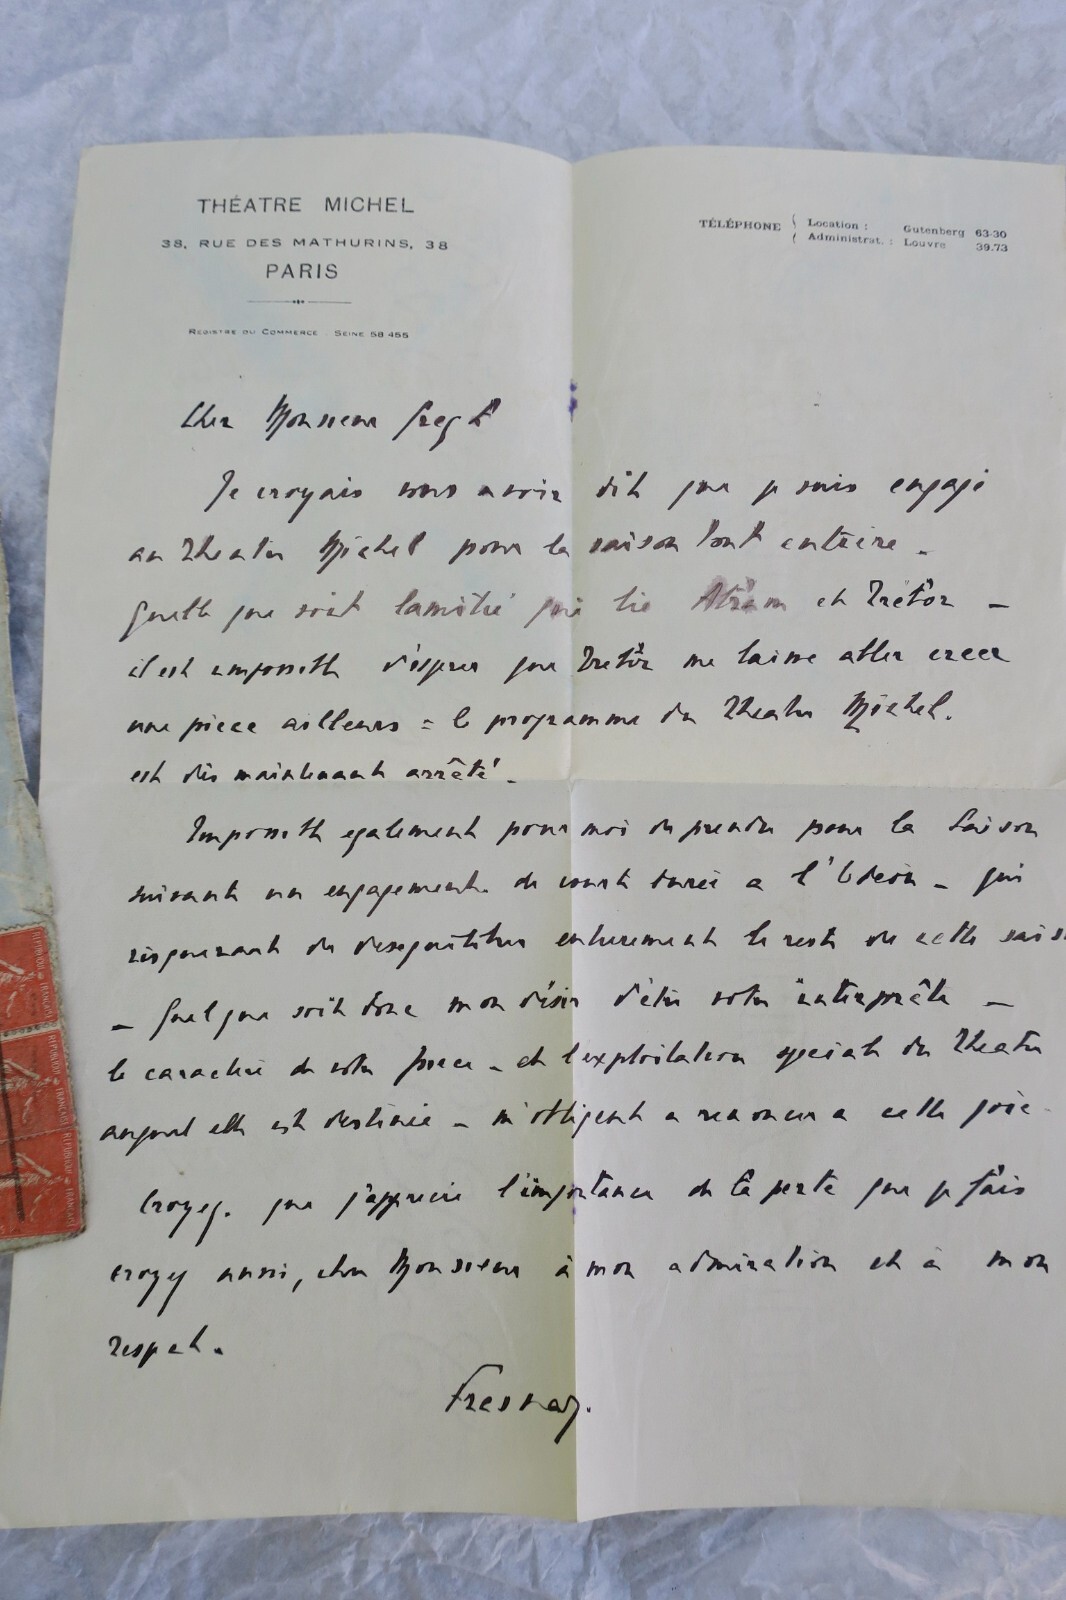 THÉATRE MICHEL
38, RUE DES MATHURINS, 38
PARIS
REGISTRE DU COMMERCE SEINE 58 455
TÉLÉPHONE
Location : Gutenberg 63-30
Administrat. : Louvre 39.73
Cher Monsieur
Je croyais vous avoir dit que je suis engagé
au Theatre Michel pour la saison tout entière -
Quelle que soit l'amitié qui lie et Trébor -
il est impossible d'espérer que Trébor me laisse aller creer
une piece ailleurs = le programme du Theatre Michel.
est dès maintenant arrêté -
Impossible egalement pour moi de prendre pour la saison
suivante un engagement de courte durée a l'Odéon - qui
risquerait de desequilibrer entierement le reste de cette sais
- Quel que soit donc mon désir d'être votre interprête -
le caractère de votre piece - et l'exploitation speciale du Theatre
auquel elle est destinée - m'obligent a renoncer a cette joie -
Croyez. que j'apprecie l'importance de la perte que je fais
croyez aussi, cher Monsieur à mon admiration et à mon
respect.
Fresnay.
REPUBLIQUE FRANÇAISE
REPUBLIQUE FRANÇAISE
REPUBLIQUE FRANÇAISE